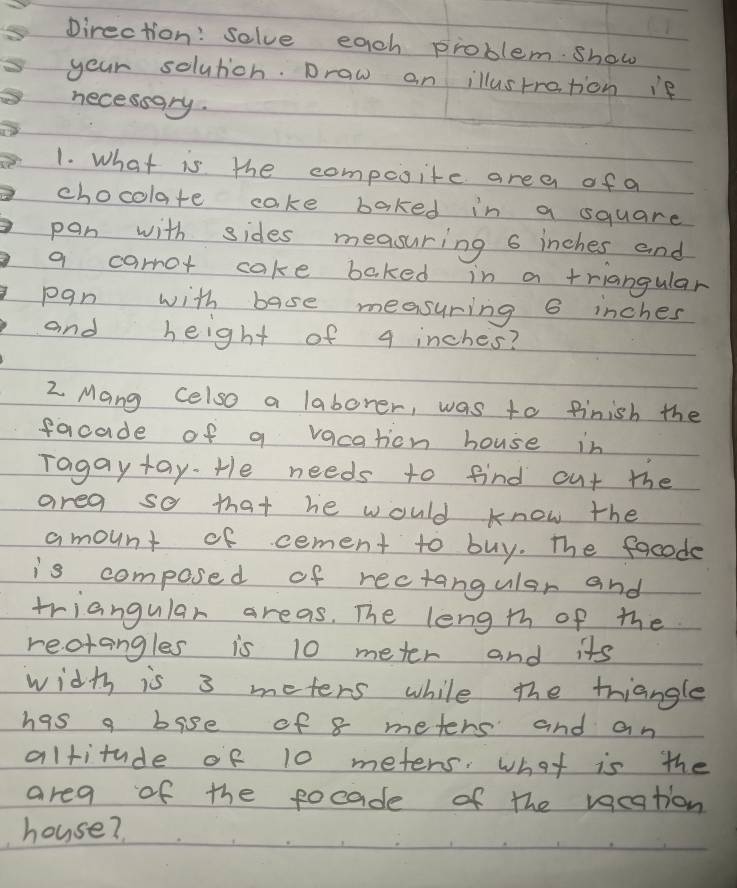 Direction: Solve each problem. Show
your solution. Draw an illustration if
necessary.
1. What is the composite area of a
chocolate cake baked in a square
pan with sides measuring 6 inches and
a carrot cake baked in a triangular
pan with base measuring 6 inches
and height of 4 inches?
2. Mang Celso a laborer, was to finish the
facade of a vacation house in
Tagaytay. He needs to find out the
area so that he would know the
amount of cement to buy. The facode
is composed of rectangular and
triangular areas. The length of the
rectangles is 10 meter and its
width is 3 meters while the triangle
has a base of 8 meters and an
altitude of 10 meters. what is the
area of the focade of the vacation
house?